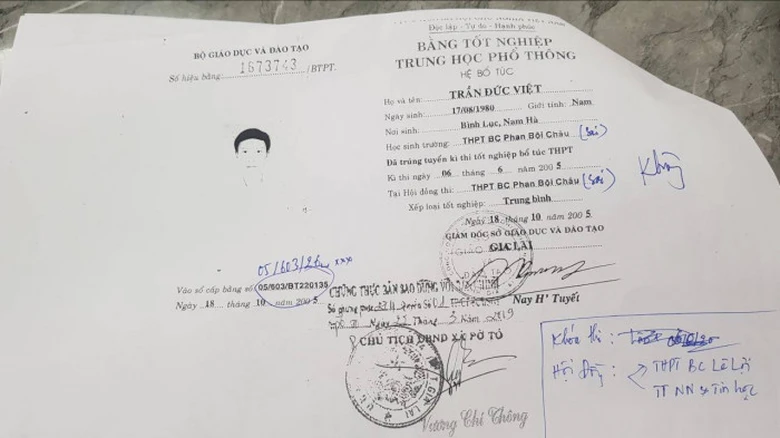 BỘ GIÁO DỤC VÀ ĐÀO TẠO
Số hiệu bằng: 1673743 /BTPT.
Độc lập - Tự do - Hạnh phúc
BẰNG TỐT NGHIỆP
TRUNG HỌC PHỔ THÔNG
HỆ BỔ TÚC
Họ và tên: TRẦN ĐỨC VIỆT
Ngày sinh: 17/08/1980 Giới tính: Nam
Nơi sinh: Bình Lục, Nam Hà
Học sinh trường: THPT BC Phan Bội Châu (sai)
Đã trúng tuyển kì thi tốt nghiệp bổ túc THPT
Kì thi ngày 06 tháng 6 năm 2005
Tại Hội đồng thi: THPT BC Phan Bội Châu (sai)
Không
Xếp loại tốt nghiệp: Trung bình
Ngày 18 tháng 10 năm 2005
GIÁM ĐỐC SỞ GIÁO DỤC VÀ ĐÀO TẠO
GIA LAI
Nay H' Tuyết
05/603/ xxxx
Vào sổ cấp bằng số 05/603/BT220135
Ngày 18 tháng 10 năm 2005
CHỨNG THỰC BẢN SAO ĐÚNG VỚI
Ngày Tháng 3 Năm 2019
CHỦ TỊCH UBND XÃ PỜ TÓ
Vương Chí Thông
Khóa thi :
Hội đồng : THPT BC Lê Lợi
TT NN & Tin học